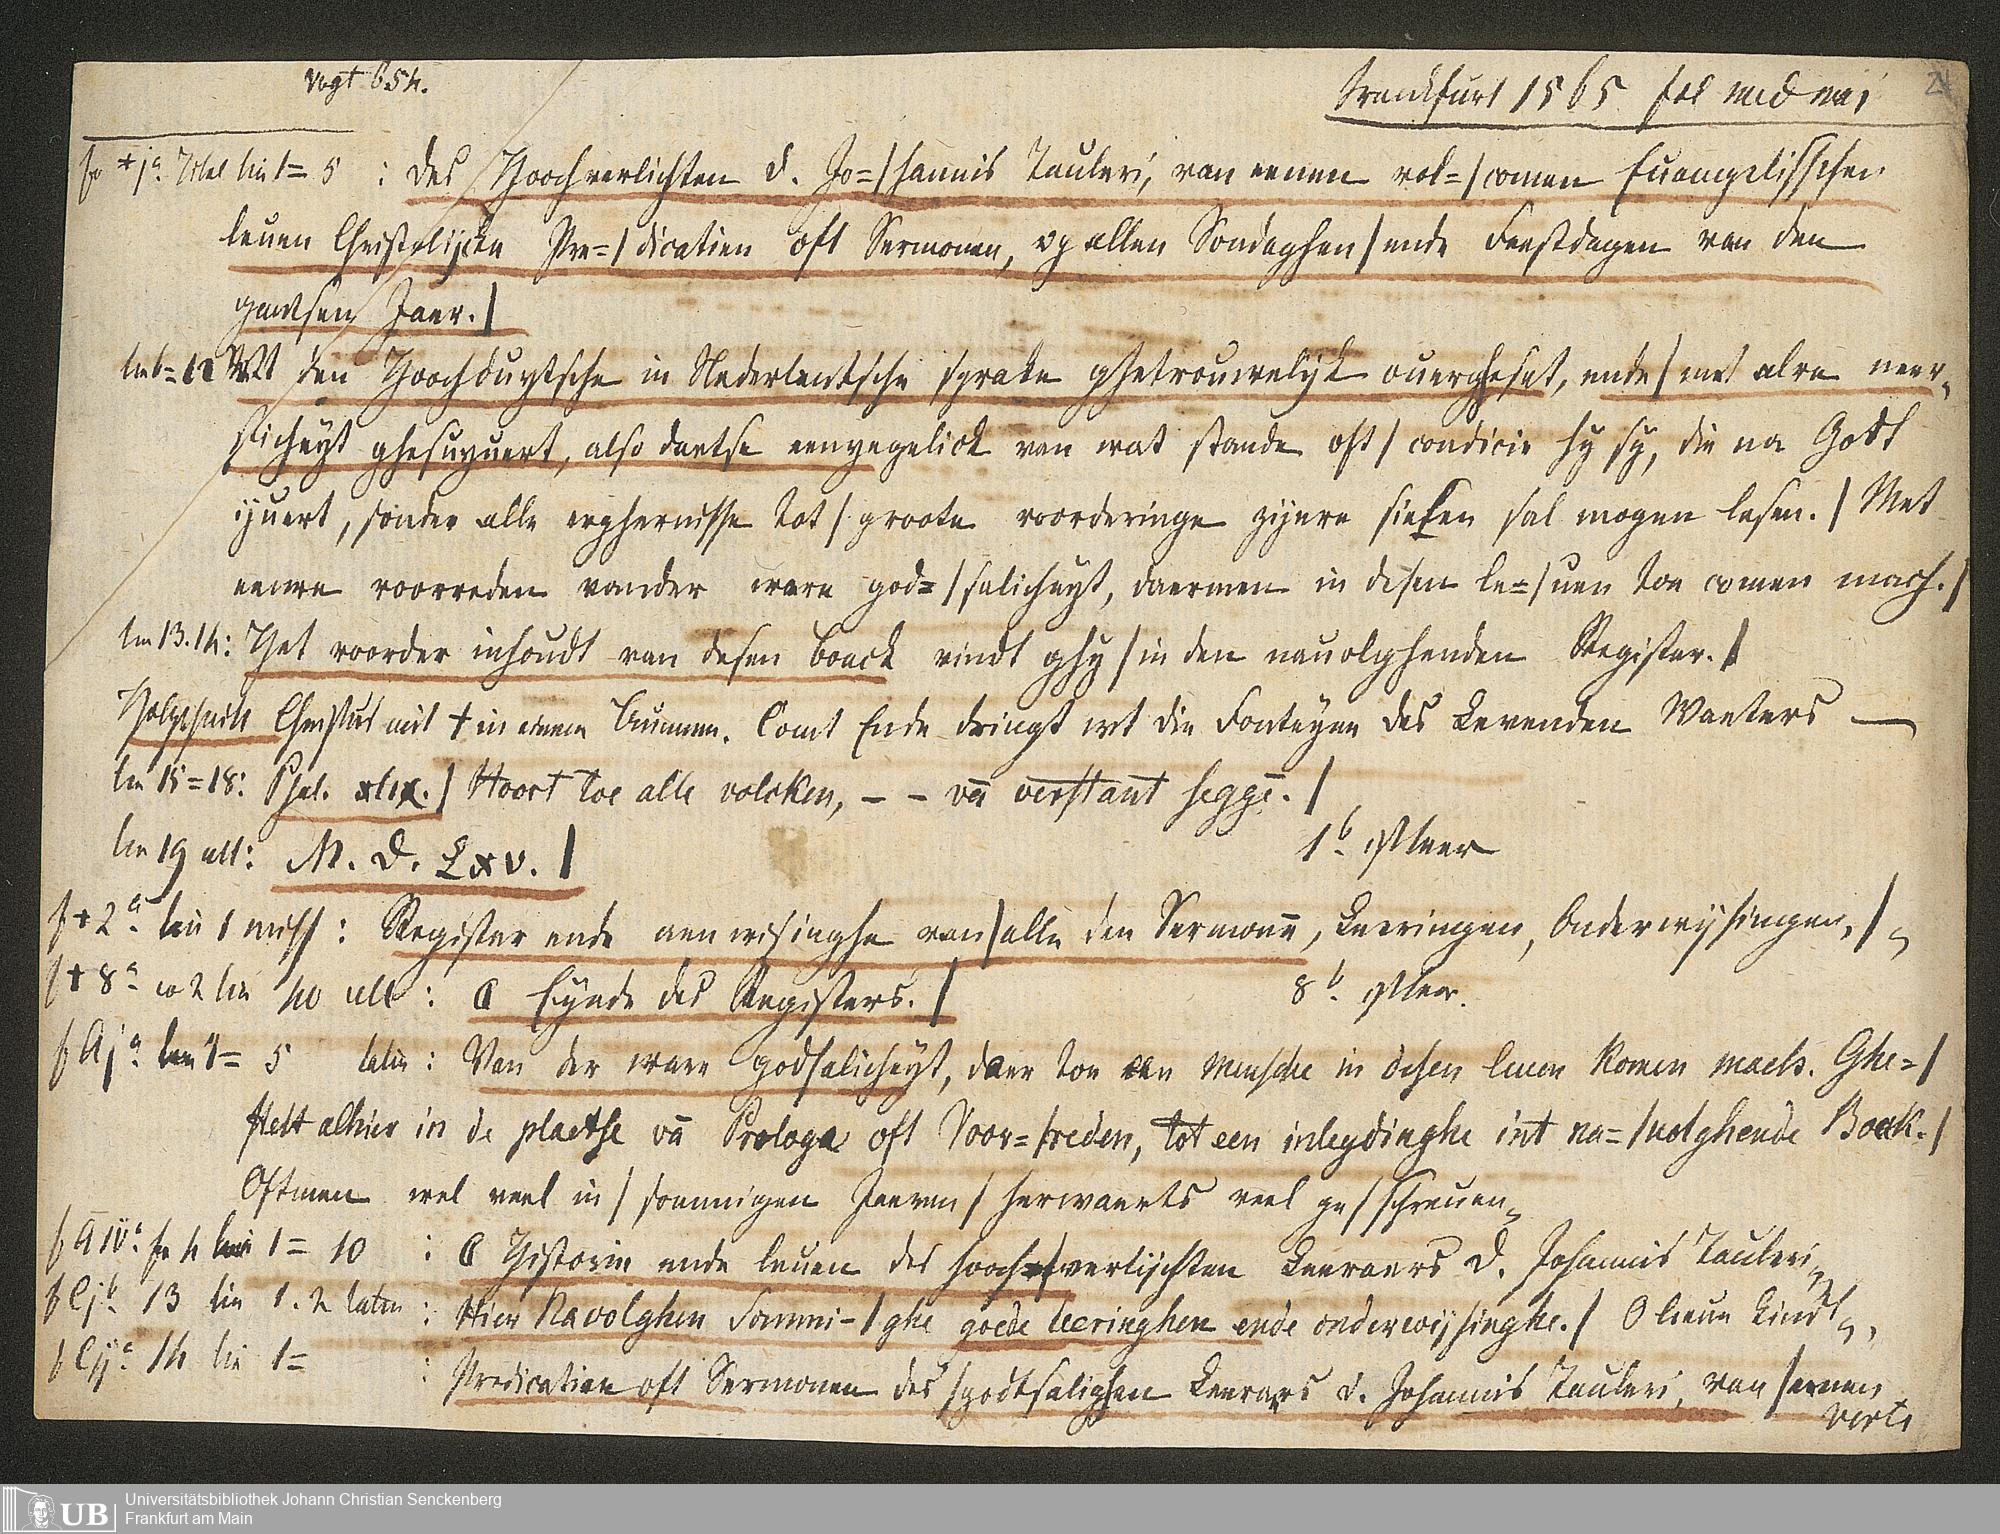 Vogt 654.
Franckfurt 1565 fol med mai
24
fo +jª. Titel lin 1= 5 : Des Hoochverlichten D. Jo=/hannis Tauleri, van eenen vol=/comen Euangelisschen
leuen Christelijcke Pre=/dicatien oft Sermonen, op allen Sondaghen/ende Feestdagen van den
gantsen Jaer./
lin 6=12 Wt den Hoochduytsche in Nederlantsche sprake ghetrouwelijck ouergheset, ende/met alre neer-
sticheyt ghesuyuert, also daetse eenyegelick van wat stande oft/condicie hy sy, die na Godt
ijuert, sonder alle erghernisse tot/groote voorderinge zijnre sielen sal mogen lesen./Met
eenre voorreden vander ware god=/salicheyt, daermen in desen le=/uen toe comen mach./
lin 13.14: Het voorder inhoudt van desen boeck vindt ghy/in den nauolghenden Register./
Holzschnitt Christus mit + in einem Brunnen. Comt Ende dringt wt die Fonteyne des Levenden Waeters —
lin 15=18: Psal. xlix./Hoort toe alle volcken, – – vā verstant seggē./
lin 19 ult: M. D. Lxv./
1ᵇ. ist leer
f+2ª lin 1 miss: Register ende aenwisinghe van/alle den Sermonē, Leeringen, Onderwijsingen,/
f+8ª co 2 lin 40 ult: C Eynde des Registers./
8ᵇ. ist leer.
f Ajª lin 1= 5 latin: Van der ware godsalicheyt, daer toe een mensche in desen leuen komen mach. Ghe=/
stelt alhier in de plaetse vā Prologe oft Voor=/reden, tot een inleydinghe int na=/uolghende Boeck./
Oftmen wel veel in/sommigen Jaeren/herwaerts veel ge/schreuen
f Aivª. fo 4 lin 1= 10 : C Historie ende leuen des hooch/verlichten Leeraers D. Johannis Tauleri
f Cjᵇ. 13 lin 1.2 latin: Hier Navolghen sommi-/ghe goede leeringhen ende onderwijsinghe./O lieue kindt
f Cijª. 14 lin 1= : Predicatien oft Sermonen des/godtsalighen Leeraers D. Johannis Tauleri, van/eenen
verte
Universitätsbibliothek Johann Christian Senckenberg
Frankfurt am Main
UB